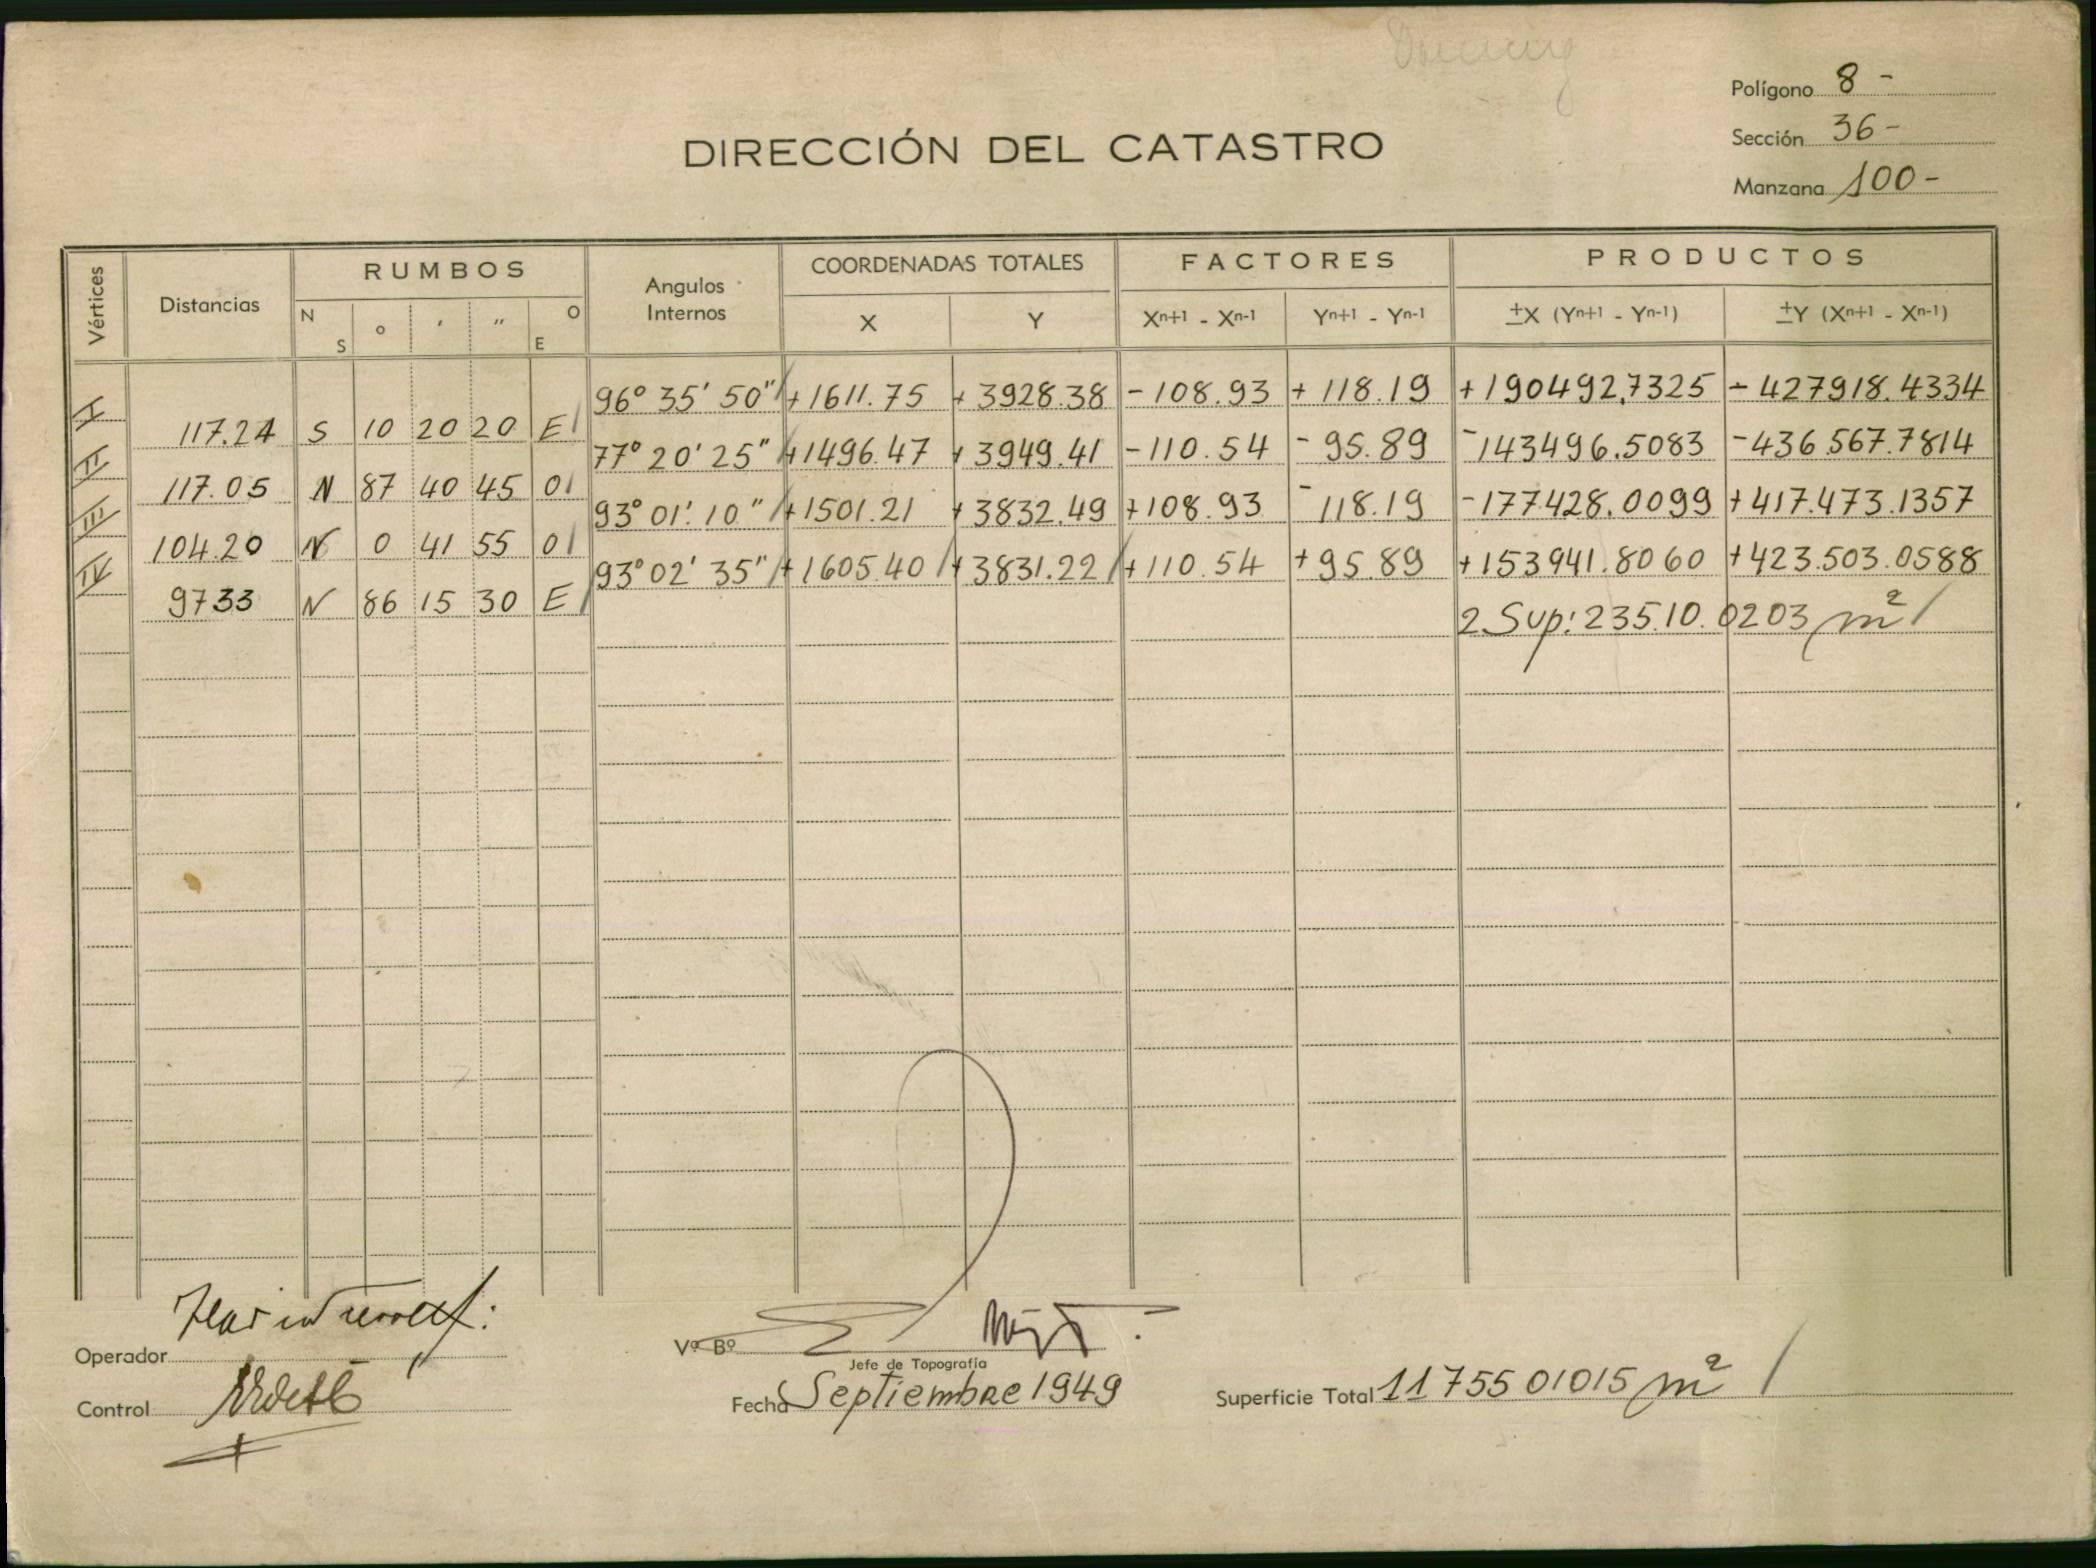 Polígono 8 -
Sección 36 -
Manzana 100 -
DIRECCIÓN DEL CATASTRO
Vértices Distancias RUMBOS Angulos Internos COORDENADAS TOTALES FACTORES PRODUCTOS
N S ° ′ ″ O E X Y Xn+1 - Xn-1 Yn+1 - Yn-1 ±X (Yn+1 - Yn-1) ±Y (Xn+1 - Xn-1)
I 96° 35' 50" +1611.75 +3928.38 -108.93 +118.19 +190492,7325 -427918.4334
117.24 S 10 20 20 E
II 77° 20' 25" +1496.47 +3949.41 -110.54 -95.89 -143496.5083 -436.567.7814
117.05 N 87 40 45 O
III 93° 01' 10" +1501.21 +3832.49 +108.93 -118.19 -177428.0099 +417.473.1357
104.20 N 0 41 55 O
IV 93° 02' 35" +1605.40 +3831.22 +110.54 +95.89 +153941.8060 +423.503.0588
9733 N 86 15 30 E
2 Sup: 235.10.0203 m²
Operador
Vº Bº
Jefe de Topografía
Control
Fecha Septiembre 1949
Superficie Total 11755 01015 m²